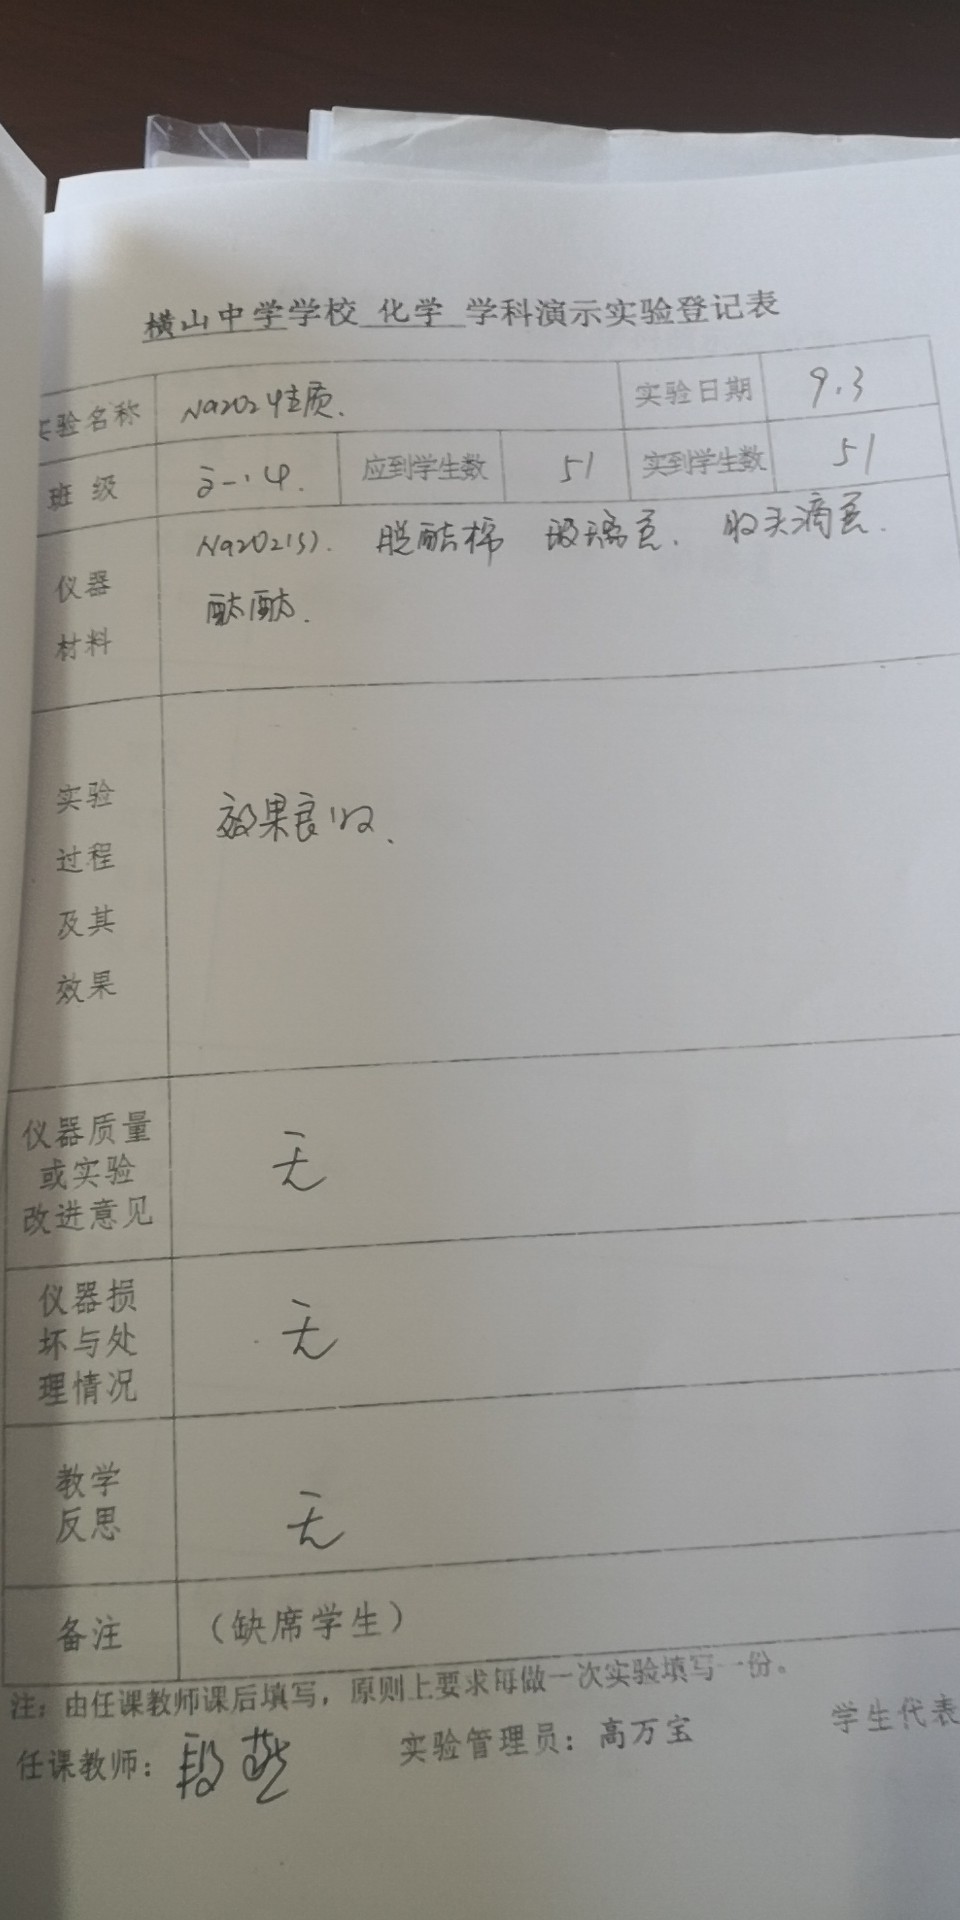 横山中学学校 化学 学科演示实验登记表
实验名称 Na2O2性质. 实验日期 9.3
班级 应到学生数 51 实到学生数 51
仪器材料 Na2O2(s). 脱酯棉 玻璃管. 胶头滴管.
酚酞.
实验
过程
及其
效果
效果良好.
仪器质量
或实验
改进意见
无
仪器损
坏与处
理情况
无
教学
反思
无
备注 (缺席学生)
注：由任课教师课后填写，原则上要求每做一次实验填写一份。
任课教师： 段 实验管理员：高万宝 学生代表